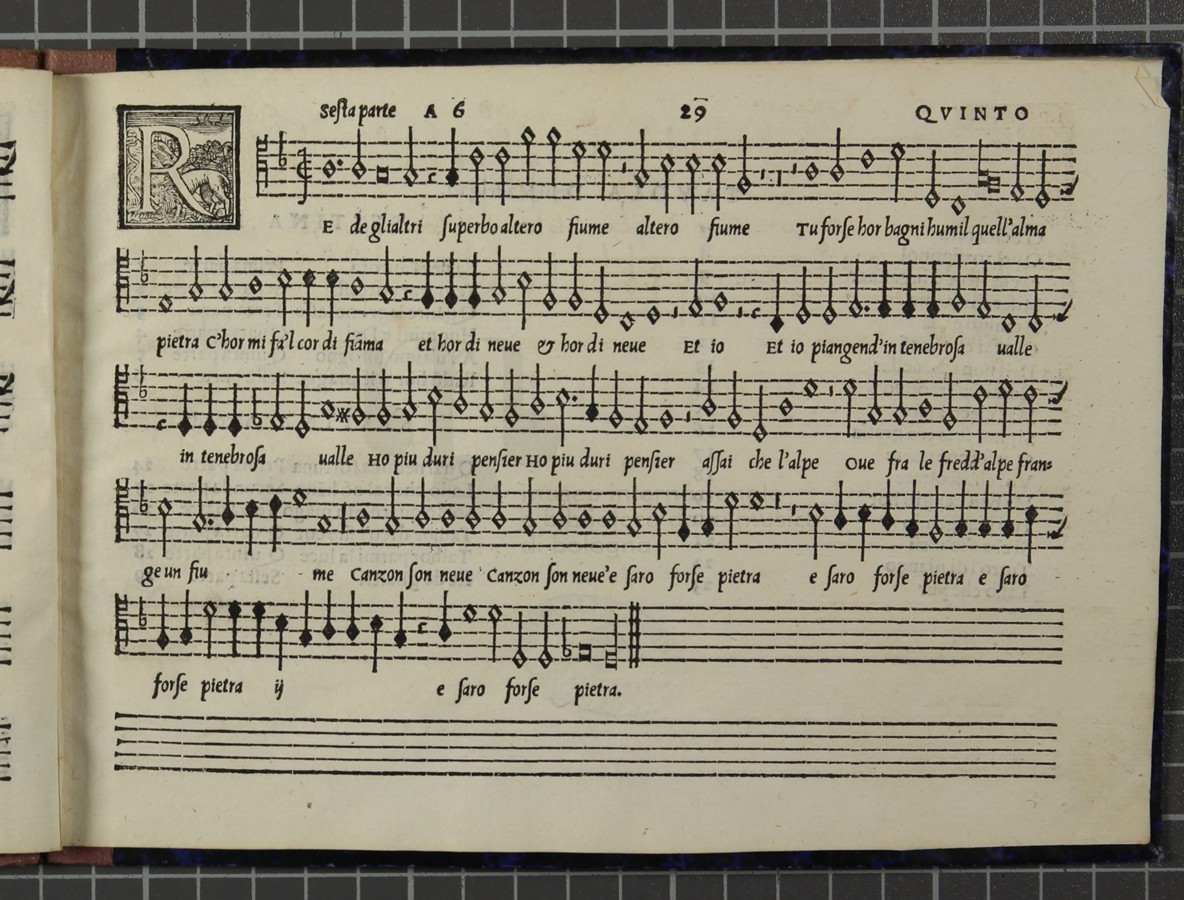 Sesta parte A 6 29 QVINTO
RE de glialtri superbo altero fiume altero fiume Tu forse hor bagni humil quell'alma
pietra C'hor mi fa'l cor di fiāma et hor di neue & hor di neue Et io Et io piangend'in tenebrosa ualle
in tenebrosa ualle Ho piu duri pensier Ho piu duri pensier assai che l'alpe Oue fra le fredd'alpe fran=
ge un fiu me Canzon son neue Canzon son neue'e saro forse pietra e saro forse pietra e saro
forse pietra ij e saro forse pietra.